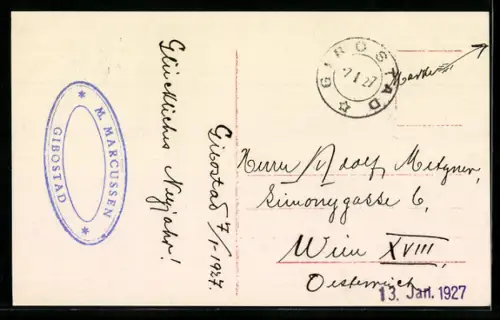 Glückliches Neujahr!
Gibostad 7/1-1927.
M. MARCUSSEN
GIBOSTAD
GIBOSTAD
7 1 27
Marke
Herrn Adolf Metzner,
Simonygasse 6,
Wien XVIII,
Oesterreich
13. Jan. 1927